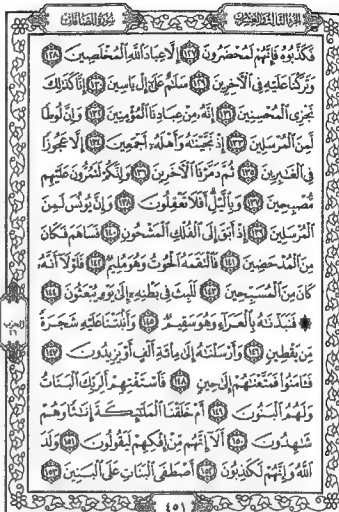 سورة الصافات الجزء الثالث والعشرون
فَكَذَّبُوهُ فَإِنَّهُمْ لَمُحْضَرُونَ ١٢٧ إِلَّا عِبَادَ اللَّهِ الْمُخْلَصِينَ ١٢٨
وَتَرَكْنَا عَلَيْهِ فِي الْآخِرِينَ ١٢٩ سَلَامٌ عَلَىٰ إِلْ يَاسِينَ ١٣٠ إِنَّا كَذَٰلِكَ
نَجْزِي الْمُحْسِنِينَ ١٣١ إِنَّهُ مِنْ عِبَادِنَا الْمُؤْمِنِينَ ١٣٢ وَإِنَّ لُوطًا
لَّمِنَ الْمُرْسَلِينَ ١٣٣ إِذْ نَجَّيْنَاهُ وَأَهْلَهُ أَجْمَعِينَ ١٣٤ إِلَّا عَجُوزًا
فِي الْغَابِرِينَ ١٣٥ ثُمَّ دَمَّرْنَا الْآخَرِينَ ١٣٦ وَإِنَّكُمْ لَتَمُرُّونَ عَلَيْهِم
مُّصْبِحِينَ ١٣٧ وَبِاللَّيْلِ أَفَلَا تَعْقِلُونَ ١٣٨ وَإِنَّ يُونُسَ لَمِنَ
الْمُرْسَلِينَ ١٣٩ إِذْ أَبَقَ إِلَى الْفُلْكِ الْمَشْحُونِ ١٤٠ فَسَاهَمَ فَكَانَ
مِنَ الْمُدْحَضِينَ ١٤١ فَالْتَقَمَهُ الْحُوتُ وَهُوَ مُلِيمٌ ١٤٢ فَلَوْلَا أَنَّهُ
كَانَ مِنَ الْمُسَبِّحِينَ ١٤٣ لَلَبِثَ فِي بَطْنِهِ إِلَىٰ يَوْمِ يُبْعَثُونَ ١٤٤
۞ فَنَبَذْنَاهُ بِالْعَرَاءِ وَهُوَ سَقِيمٌ ١٤٥ وَأَنبَتْنَا عَلَيْهِ شَجَرَةً
مِّن يَقْطِينٍ ١٤٦ وَأَرْسَلْنَاهُ إِلَىٰ مِائَةِ أَلْفٍ أَوْ يَزِيدُونَ ١٤٧
فَآمَنُوا فَمَتَّعْنَاهُمْ إِلَىٰ حِينٍ ١٤٨ فَاسْتَفْتِهِمْ أَلِرَبِّكَ الْبَنَاتُ
وَلَهُمُ الْبَنُونَ ١٤٩ أَمْ خَلَقْنَا الْمَلَائِكَةَ إِنَاثًا وَهُمْ
شَاهِدُونَ ١٥٠ أَلَا إِنَّهُم مِّنْ إِفْكِهِمْ لَيَقُولُونَ ١٥١ وَلَدَ
اللَّهُ وَإِنَّهُمْ لَكَاذِبُونَ ١٥٢ أَصْطَفَى الْبَنَاتِ عَلَى الْبَنِينَ ١٥٣
الحزب
٤٦
٤٥١